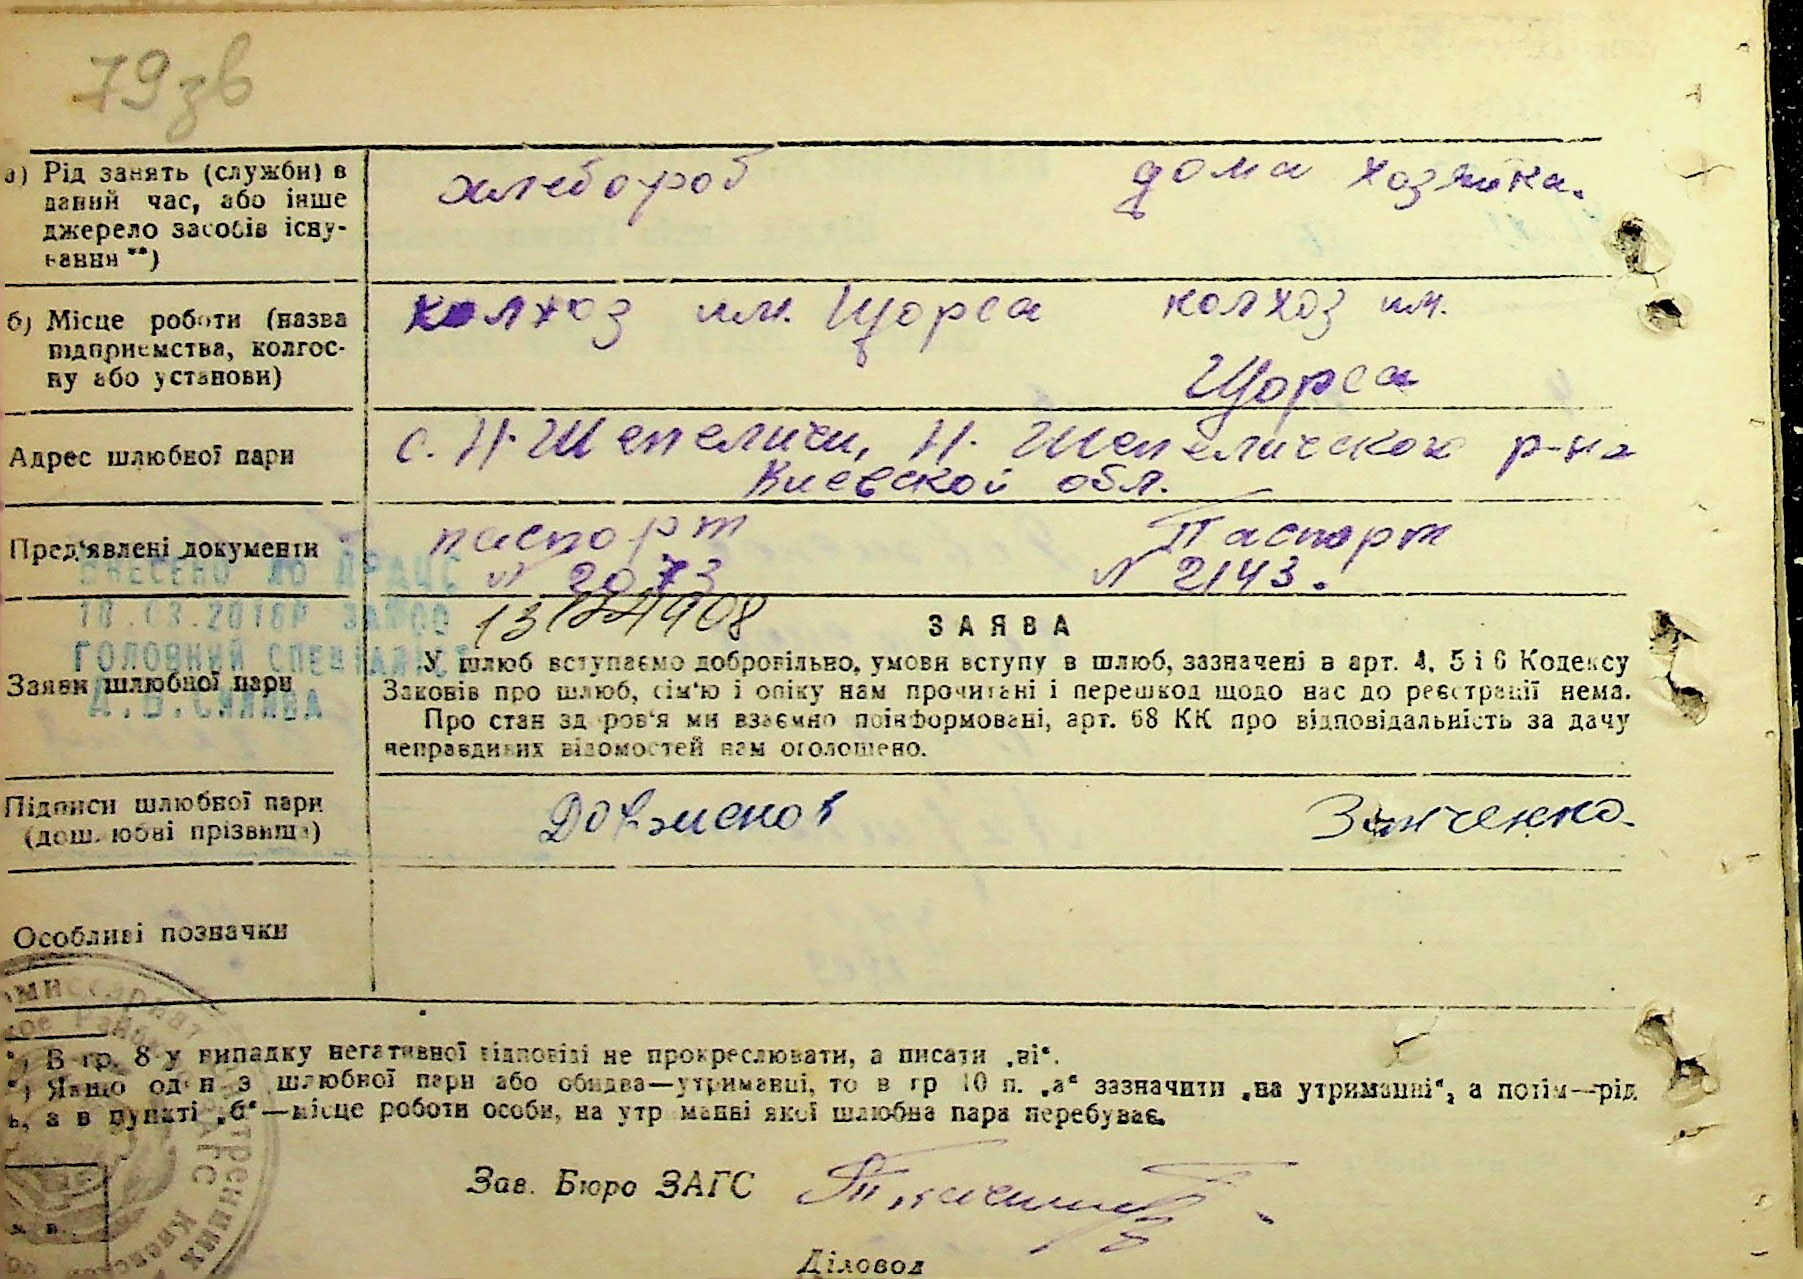 79зв
а) Рід занять (службн) в
даний час, або інше
джерело засобів існу-
вання **)
хлебороб
дома хозяйка.
б) Місце роботи (назва
підприємства, колгос-
пу або установи)
колхоз им. Щорса
колхоз им.
Щорса
Адрес шлюбної пари
с. Н. Шепеличи, Н. Шепеличского р-на
Киевской обл.
Пред'явлені документи
паспорт
№ 2073
Паспорт
№ 2143.
ВНЕСЕНО ДО ДРАЦС
ГОЛОВНИЙ СПЕЦІАЛІСТ
Заяви шлюбної пари
ЗАЯВА
У шлюб вступаємо добровільно, умови вступу в шлюб, зазначені в арт. 4, 5 і 6 Кодексу
Законів про шлюб, сім'ю і опіку нам прочитані і перешкод щодо нас до реєстрації нема.
Про стан здоров'я ми взаємно поінформовані, арт. 68 КК про відповідальність за дачу
неправдивих відомостей нам оголошено.
Підписи шлюбної пари
(дошлюбні прізвища)
Зинченко.
Особливі позначки
*) В гр. 8 у випадку негативної відповіді не прокреслювати, а писати „ні“.
*) Якщо один з шлюбної пари або обидва—утриманці, то в гр 10 п. „а“ зазначити „на утриманні“, а потім—рід
ь, а в пункті „б“—місце роботи особи, на утриманні якої шлюбна пара перебуває.
Зав. Бюро ЗАГС
Діловод